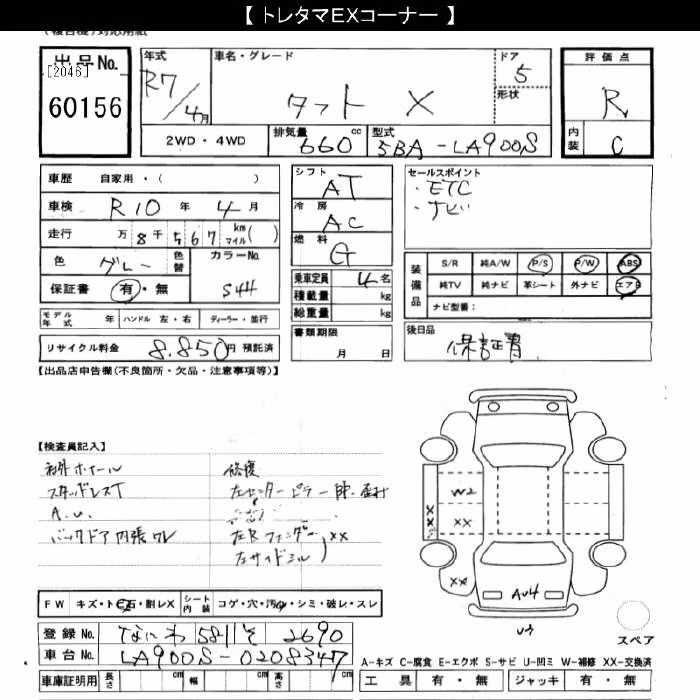 【 トレタマEXコーナー 】
(複合機)対応用紙
出品No.
[2046]
60156
年式
R7/4月
車名・グレード
タフト X
ドア
5
形状
評価点
R
内装
C
2WD・4WD
排気量
660 cc
型式
5BA-LA900S
車歴 自家用・( )
車検 R10 年 4 月
走行 万 8 千 5 6 7 km マイル( )
色 グレー 色替
カラーNo.
S44
保証書 有・無
モデル年式 年 ハンドル 左・右 ディーラー・並行
リサイクル料金 8.850円 預託済
シフト
AT
冷房
AC
燃料
G
乗車定員 4 名
積載量 kg
総重量 kg
書類期限
月 日
セールスポイント
・ETC
・ナビ
装備品
S/R 純A/W P/S P/W ABS
純TV 純ナビ 革シート 外ナビ エアB
ナビ型番:
後日品
保証書
【出品店申告欄(不良箇所・欠品・注意事項等)】
【検査員記入】
社外ホイール
スタッドレスT
A.U.
バックドア内張ワレ
修復
左センターピラー
左Rフェンダー XX
左サイドシル
W2
XX
XX
XX
AU4
U3
スペア
FW キズ・トビ石・割レX シート内装 コゲ・穴・汚レ・シミ・破レ・スレ
登録No. なにわ 581 そ 2690
車台No. LA900S-0208347
車庫証明用 長さ cm 幅 cm 高さ cm
A-キズ C-腐食 E-エクボ S-サビ U-凹ミ W-補修 XX-交換済
工具 有・無 ジャッキ 有・無